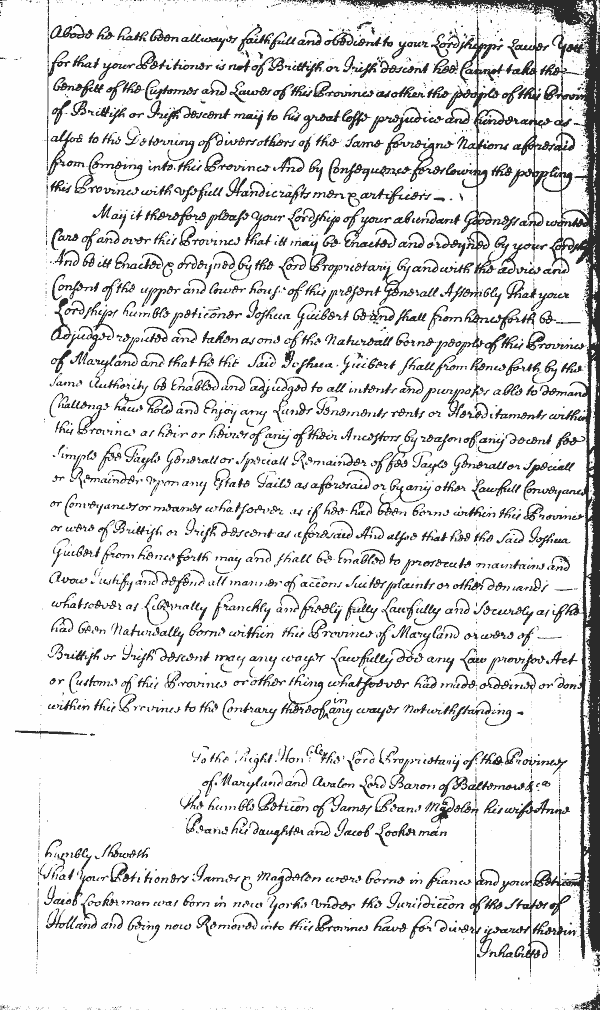 Abode he hath been allwayes faithfull and obedient to your Lordshipps Lawes Yett
for that your Petitioner is not of Brittish or Irish descent hee Cannot take the
benefitt of the Customes and Lawes of this Province as other the people of this Province
of Brittish or Irish descent may to his great losse prejudice and hinderance as
alsoe to the Deterring of divers others of the same forreigne Nations aforesaid
from Comeing into this Province And by Consequence foreslowing the peopling
this Province with usefull Handicrafts men & artificers
May it therefore please Your Lordship of your abundant Goodness and wonted
Care of and over this Province that itt may be Enacted and ordeyned by your Lordship
And be itt Enacted & ordeyned by the Lord Proprietary by and with the advice and
Consent of the upper and lower house of this present Generall Assembly That your
Lordships humble peticoner Joshua Guibert be and shall from henceforth be
Adjudged reputed and taken as one of the Natureall borne people of this Province
of Maryland and that he the Said Joshua Guibert shall from hence forth by the
same Authority be Enabled and adjudged to all intents and purposes able to demand
Challenge have hold and Enjoy any Lands Tenements rents or Hereditaments within
this Province as heir or heires of any of their Ancestors by reason of any decent fee
Simple fee Tayle Generall or Speciall Remainder of fee Tayle Generall or Speciall
or Remainder upon any Estate Taile as aforesaid or by any other Lawfull Conveyance
or Conveyances or meanes whatsoever as if hee had been borne within this Province
or were of Brittish or Irish descent as aforesaid And alsoe that hee the Said Joshua
Guibert from henceforth may and shall be Enabled to prosecute maintaine and
Avow Justify and defend all manner of accons Suites plaints or other demands
whatsoever as Liberally franckly and freely fully Lawfully and Securely as if he
had been Natureally borne within this Province of Maryland or were of
Brittish or Irish descent may any wayes Lawfully doe any Law provisoe Act
or Custome of this Province or other thing whatsoever had made ordeined or done
within this Province to the Contrary thereof in any wayes Notwithstanding
To the Right Honble the Lord Proprietary of the Provinces
of Maryland and Avalon Lord Baron of Baltemore &ca
the humble Peticon of James Peane Magdelen his wife Anne
Peane his daughter and Jacob Lookerman
humbly Sheweth
That your Petitioners James & Magdelen were borne in france and your Peticoner
Jacob Lookerman was born in new Yorke under the Jurisdiccon of the States of
Holland and being now Removed into this Province have for divers yeares therein
Inhabitted